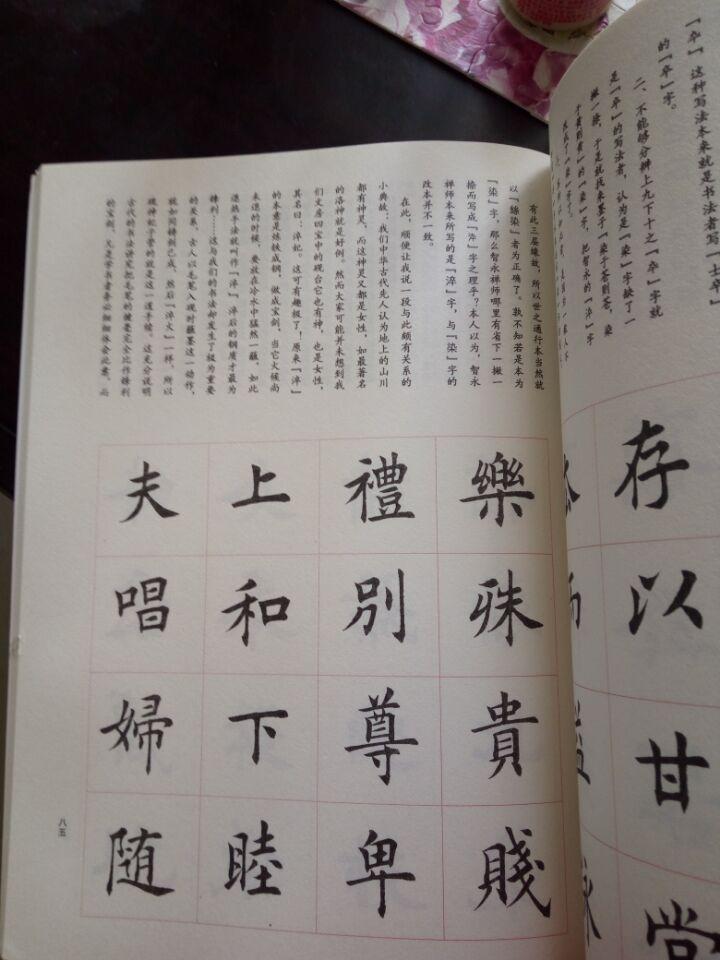 『卒』这种写法本来就是书法者写『士卒』
的『卒』字。
二、不能够分辨上九下十之『卒』字就
是『卒』的写法者，认为是『染』字缺了一
撇一捺，于是就找来墨子『染于苍则苍，染
于黄则黄』的『染』字，把智永的『淬』字
有此三层缘故，所以世之通行本当然就
以『丝染』者为正确了。孰不知若是本为
『染』字，那么智永禅师哪里有省下一撇一
捺而写成『淬』字之理乎？本人以为，智永
禅师本来所写的是『淬』字，与『染』字的
改本并不一致。
在此，顺便让我说一段与此颇有关系的
小典故：我们中华古代先人认为地上的山川
都有神灵，而这神灵又都是女性，如最著名
的洛神就是好例。然而大家可能并未想到我
们文房四宝中的砚台它也有神，也是女性，
其名曰：淬妃。这可有趣极了！原来『淬』
的本意是炼铁成钢，做成宝剑，当它火候尚
未退的时候，要放在冷水中猛然一蘸，如此
退热手法就叫作『淬』，淬后的钢质才最为
锋利……这与我们的书法却发生了极为重要
的关系，古人以毛笔入砚时蘸墨这一动作，
就如同铸剑已成，然后『淬火』一样。所以
砚神妃子管的就是这一道手续。这充分说明
古代的书法讲究把毛笔的锥毫完全比作锋利
的宝剑，又是学书者务必细细体会此意。而
存以甘
樂殊貴賤
禮別尊卑
上和下睦
夫唱婦随
八五